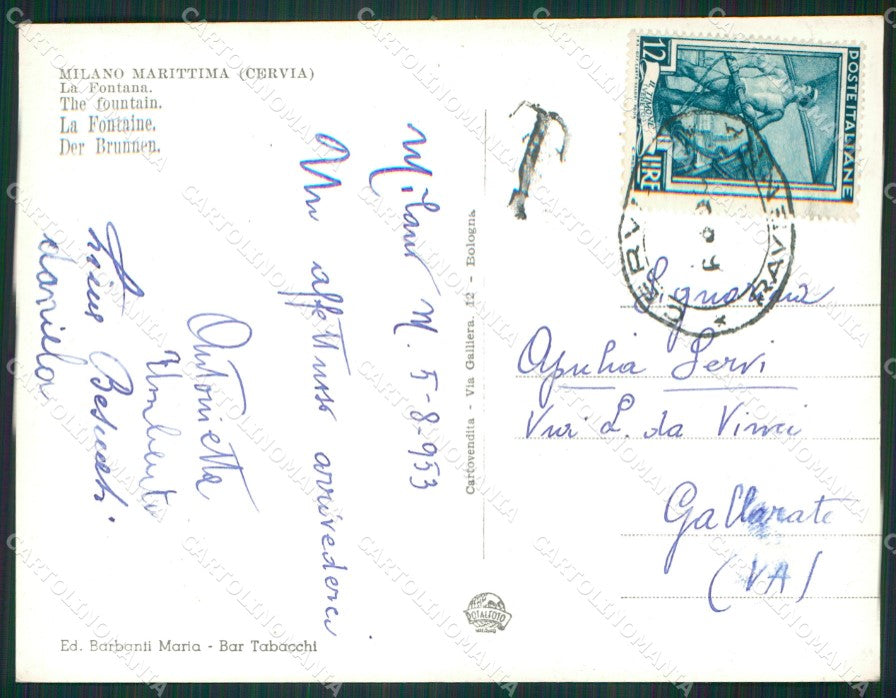 MILANO MARITTIMA (CERVIA)
La Fontana.
The fountain.
La Fontaine.
Der Brunnen.
Milano M. 5-8-953
Un affettuoso arrivederci
Antonietta
Umberto
daniela
Cartovendita - Via Galliera, 12 - Bologna
T
12
LIRE
POSTE ITALIANE
IL TIMONE
CERVIA
RAVENNA
Signorina
Apulia Servi
Via L. da Vinci
Gallarate
(VA)
TOTALFOTO
Ed. Barbanti Maria - Bar Tabacchi
CARTOLINOMANIA